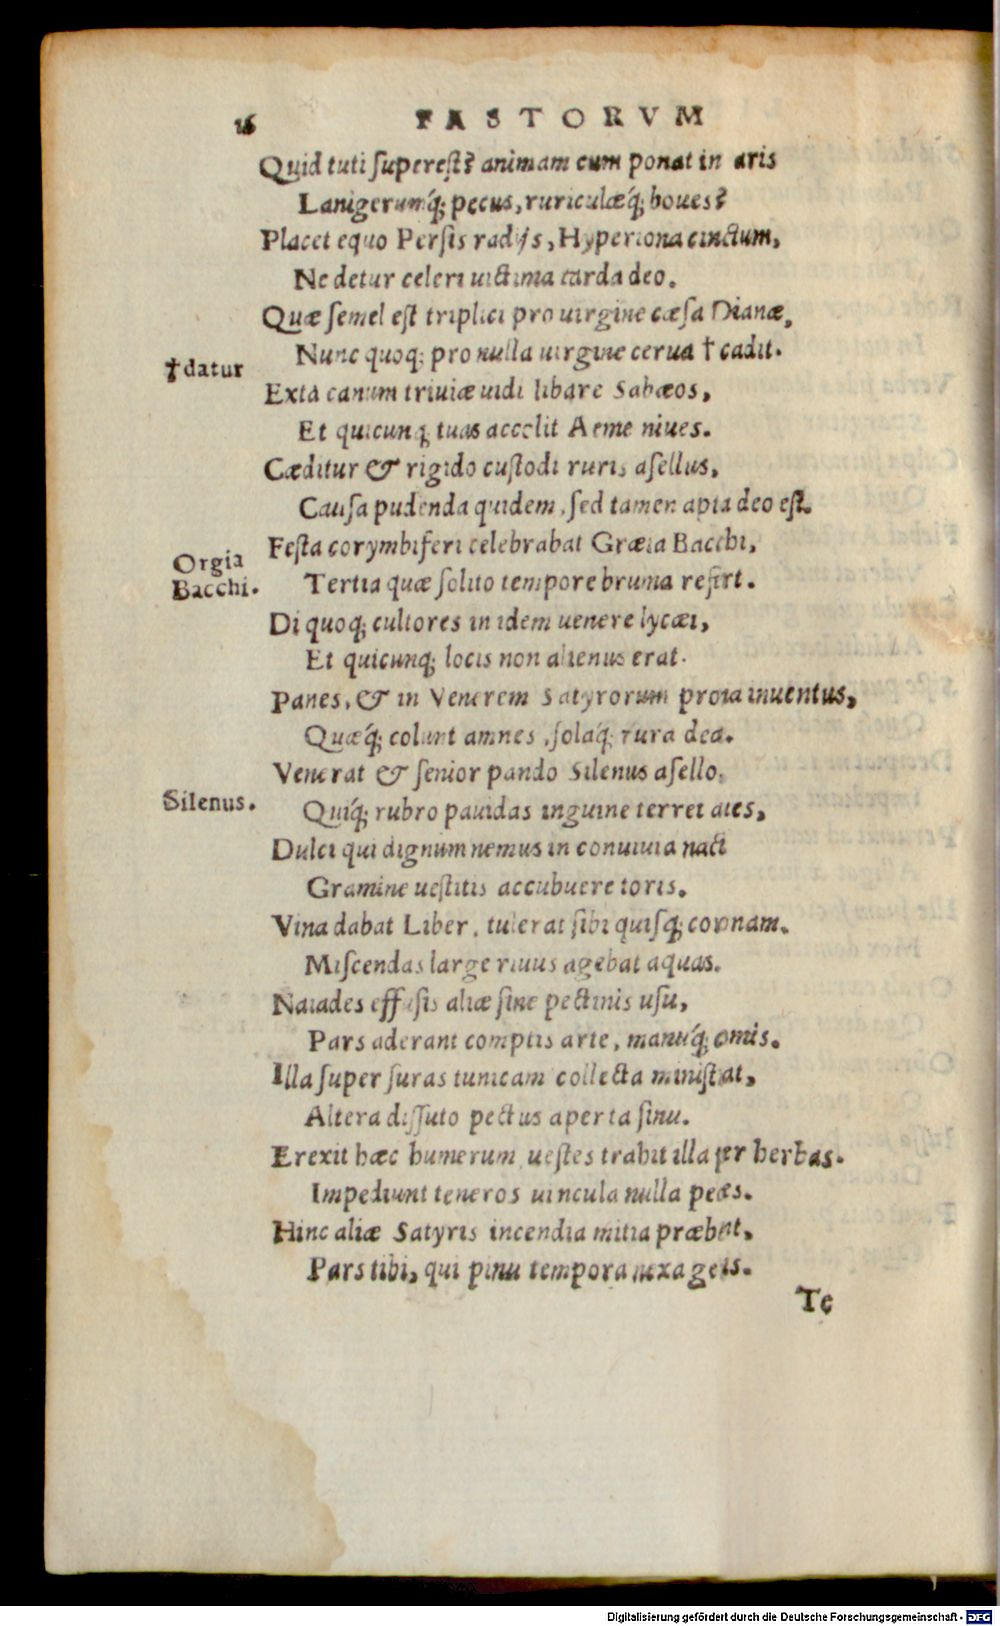 16 FASTORVM
Quid tuti superest? animam cum ponat in aris
Lanigerumq́; pecus, ruriculæq́; boues?
Placet equo Persis radijs, Hyperiona cinctum,
Ne detur celeri uictima tarda deo.
Quæ semel est triplici pro uirgine cæsa Dianæ,
Nunc quoq; pro nulla uirgine cerua † cadit.
†datur
Exta canum triuiæ uidi libare Sabæos,
Et quicunq; tuas accolit Aeme niues.
Cæditur & rigido custodi ruris asellus,
Causa pudenda quidem, sed tamen apta deo est.
Festa corymbiferi celebrabat Græia Bacchi,
Orgia
Bacchi.
Tertia quæ solito tempore bruma refert.
Di quoq; cultores in idem uenere lycæi,
Et quicunq; locis non alienus erat.
Panes, & in Venerem Satyrorum prona inuentus,
Quæq́; colunt amnes, solaq́; rura deæ.
Venerat & senior pando Silenus asello,
Silenus.
Quiq́; rubro pauidas inguine terret aues,
Dulci qui dignum nemus in conuiuia nacti
Gramine uestitis accubuere toris.
Vina dabat Liber, tulerat sibi quisq; coronam.
Miscendas large riuus agebat aquas.
Naiades effusis aliæ sine pectinis usu,
Pars aderant comptis arte, manuq́; comis.
Illa super suras tunicam collecta ministrat,
Altera dissuto pectus aperta sinu.
Erexit hæc humerum, uestes trahit illa per herbas.
Impediunt teneros uincula nulla pedes.
Hinc aliæ Satyris incendia mitia præbent,
Pars tibi, qui pinu tempora nexa geris.
Te
Digitalisierung gefördert durch die Deutsche Forschungsgemeinschaft - DFG